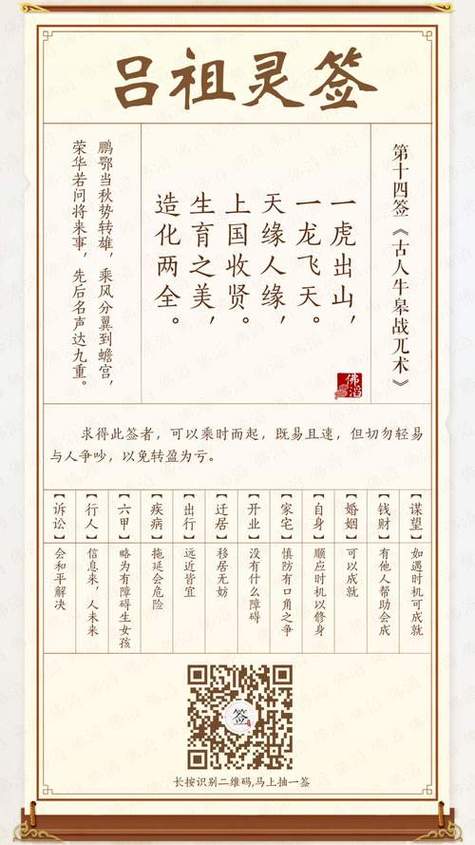 吕祖灵签
第十四签《古人牛皋战兀术》
一虎出山，
一龙飞天。
天缘人缘，
上国收贤。
生育之美，
造化两全。
鹏鄂当秋势转雄，乘风分翼到蟾宫，
荣华若问将来事，先后名声达九重。
求得此签者，可以乘时而起，既易且速，但切勿轻易
与人争吵，以免转盈为亏。
【谋望】如遇时机可成就
【钱财】有他人帮助会成
【婚姻】可以成就
【自身】顺应时机以修身
【家宅】慎防有口角之争
【开业】没有什么障碍
【迁居】移居无妨
【出行】远近皆宜
【疾病】拖延会危险
【六甲】略为有障碍生女孩
【行人】信息来，人未来
【诉讼】会和平解决
签
长按识别二维码,马上抽一签